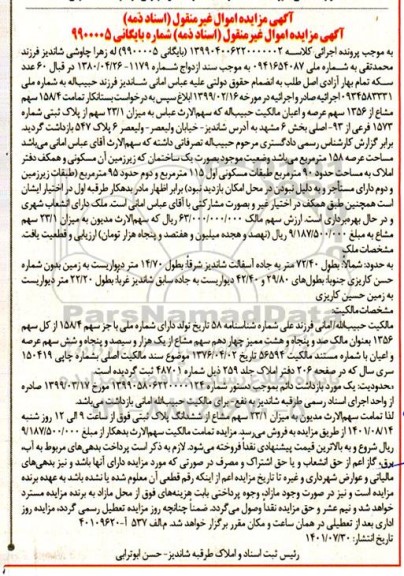 آگهی مزایده اموال غیرمنقول (اسناد ذمه)
آگهی مزایده اموال غیرمنقول (اسناد ذمه) شماره بایگانی ۹۹۰۰۰۰۵
به موجب پرونده اجرائی کلاسه ۱۳۹۹۰۴۰۰۶۲۲۰۰۰۰۰۰۲ (بایگانی ۹۹۰۰۰۰۵) له زهرا چاوشی شاندیز فرزند
محمدتقی به شماره ملی ۰۹۴۱۶۵۴۰۸۷ به موجب سند ازدواج شماره ۱۱۷۹-۱۳۸۰/۰۴/۲۶ در قبال ۶۰ عدد
سکه تمام بهار آزادی اصل طلب به انضمام حقوق دولتی علیه عباس امانی شاندیز فرزند حبیب‌اله به شماره ملی
۰۹۳۴۵۸۳۳۳۱ اجرائیه صادر و اجرائیه در مورخه ۱۳۹۹/۰۲/۱۶ ابلاغ سپس به درخواست بستانکار تمامت ۱۵۸/۴ سهم
مشاع از ۱۳۵۶ سهم عرصه و اعیان مالکیت حبیب‌اله که سهم‌الارث عباس به میزان ۲۳/۱ سهم از پلاک ثبتی شماره
۱۵۷۳ فرعی از ۹۳- اصلی بخش ۶ مشهد به آدرس شاندیز- خیابان ولیعصر- ولیعصر ۶ پلاک ۵۴۷ بازداشت گردید.
برابر گزارش کارشناس رسمی دادگستری مرحوم حبیب‌اله تصرفاتی داشته که سهم‌الارث آقای عباس امانی می‌باشد
مساحت عرصه ۱۵۸ مترمربع می‌باشد وضعیت موجود بصورت یک ساختمان که زیرزمین آن مسکونی و همکف دفتر
املاک به مساحت حدود ۹۰ مترمربع طبقات مسکونی اول ۱۱۵ مترمربع و دوم حدود ۹۵ مترمربع (طبقات زیرزمین
و دوم دارای مستأجر و به دلیل نبودن در محل امکان بازدید نبود) برابر اظهار مادر بدهکار طبقه اول در اختیار ایشان
است همچنین طبق همکف در اختیار غیر و بصورت مشارکتی با آقای عباس امانی است. ملک دارای انشعاب شهری
و در حال بهره‌برداری است. ارزش سهم مالک ۶۳/۰۰۰/۰۰۰/۰۰۰ ریال که سهم‌الارث مدیون به میزان ۲۳/۱ سهم
مشاع به مبلغ ۹/۱۸۷/۵۰۰/۰۰۰ ریال (نهصد و هجده میلیون و هفتصد و پنجاه هزار تومان) ارزیابی و قطعیت یافت.
مشخصات ملک:
به حدود: شمالا: بطول ۷۲/۴۰ متر به جاده آسفالت شاندیز شرقا: بطول ۱۴/۷۰ متر دیواریست به زمین بدون شماره
حسن کاریزی جنوبا: بطول‌های ۲۹/۸۰ و ۴۲/۴۰ دیواریست به جاده سابق شاندیز غربا: بطول ۲۲/۲۰ متر دیواریست
به زمین حسین کاریزی
مشخصات مالکیت:
مالکیت حبیب‌اله امانی فرزند علی شماره شناسنامه ۵۸ تاریخ تولد دارای شماره ملی با جز سهم ۱۵۸/۴ از کل سهم
۱۳۵۶ بعنوان مالک صد و پنجاه و هشت ممیز چهار دهم سهم مشاع از یک هزار و سیصد و پنجاه و شش سهم عرصه
و اعیان با شماره مستند مالکیت ۵۶۵۹۴ تاریخ ۱۳۷۶/۰۴/۰۲ موضوع سند مالکیت اصلی بشماره چاپی ۱۵۰۴۱۹
سری سال که در صفحه ۲۰۶ دفتر املاک جلد ۲۵۹ ذیل شماره ۴۸۷۰۱ ثبت گردیده است.
محدودیت: یک مورد بازداشت دائم بموجب دستور شماره ۱۳۹۹۰۵۸۰۶۲۲۰۰۰۰۱۲۴ مورخ ۱۳۹۹/۰۳/۱۷ صادره
از واحد اجرای اسناد رسمی طرقبه شاندیز به نفع برای مالکیت حبیب‌اله امانی بازداشت می‌باشد.
لذا تمامت سهم‌الارث مدیون به میزان ۲۳/۱ سهم مشاع از ششدانگ پلاک ثبتی فوق از ساعت ۹ الی ۱۲ روز شنبه
۱۴۰۱/۰۸/۱۴ از طریق مزایده به فروش می‌رسد. مزایده تمامت مالکیت سهم‌الارث بدهکار از مبلغ ۹/۱۸۷/۵۰۰/۰۰۰
ریال شروع و به بالاترین قیمت پیشنهادی نقدا فروخته می‌شود. لازم به ذکر است پرداخت بدهی‌های مربوط به آب،
برق، گاز اعم از حق انشعاب و یا حق اشتراک و مصرف در صورتی که مورد مزایده دارای آنها باشد و نیز بدهی‌های
مالیاتی و عوارض شهرداری و غیره تا تاریخ مزایده اعم از اینکه رقم قطعی آن معلوم شده یا نشده باشد به عهده برنده
مزایده است و نیز در صورت وجود مازاد، وجوه پرداختی بابت هزینه‌های فوق از محل مازاد به برنده مزایده مسترد
خواهد شد و نیم عشر و حق مزایده نقدا وصول می‌گردد. ضمنا چنانچه روز مزایده تعطیل رسمی گردد، مزایده روز
اداری بعد از تعطیلی در همان ساعت و مکان مقرر برگزار خواهد شد. م‌الف ۵۳۷ آ-۴۰۱۰۹۶۲۰
تاریخ انتشار: ۱۴۰۱/۰۷/۳۰
رئیس ثبت اسناد و املاک طرقبه شاندیز- حسن ابوترابی